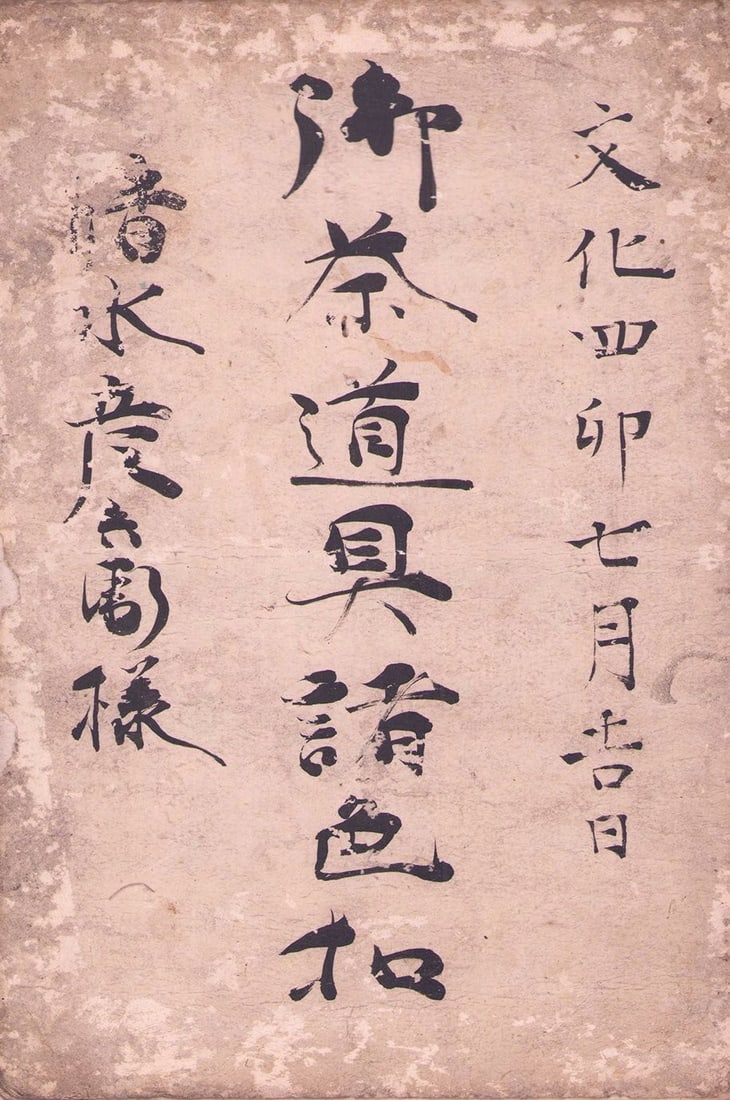 文化四卯七月吉日
御茶道具諸色扣
清水彦兵衛様